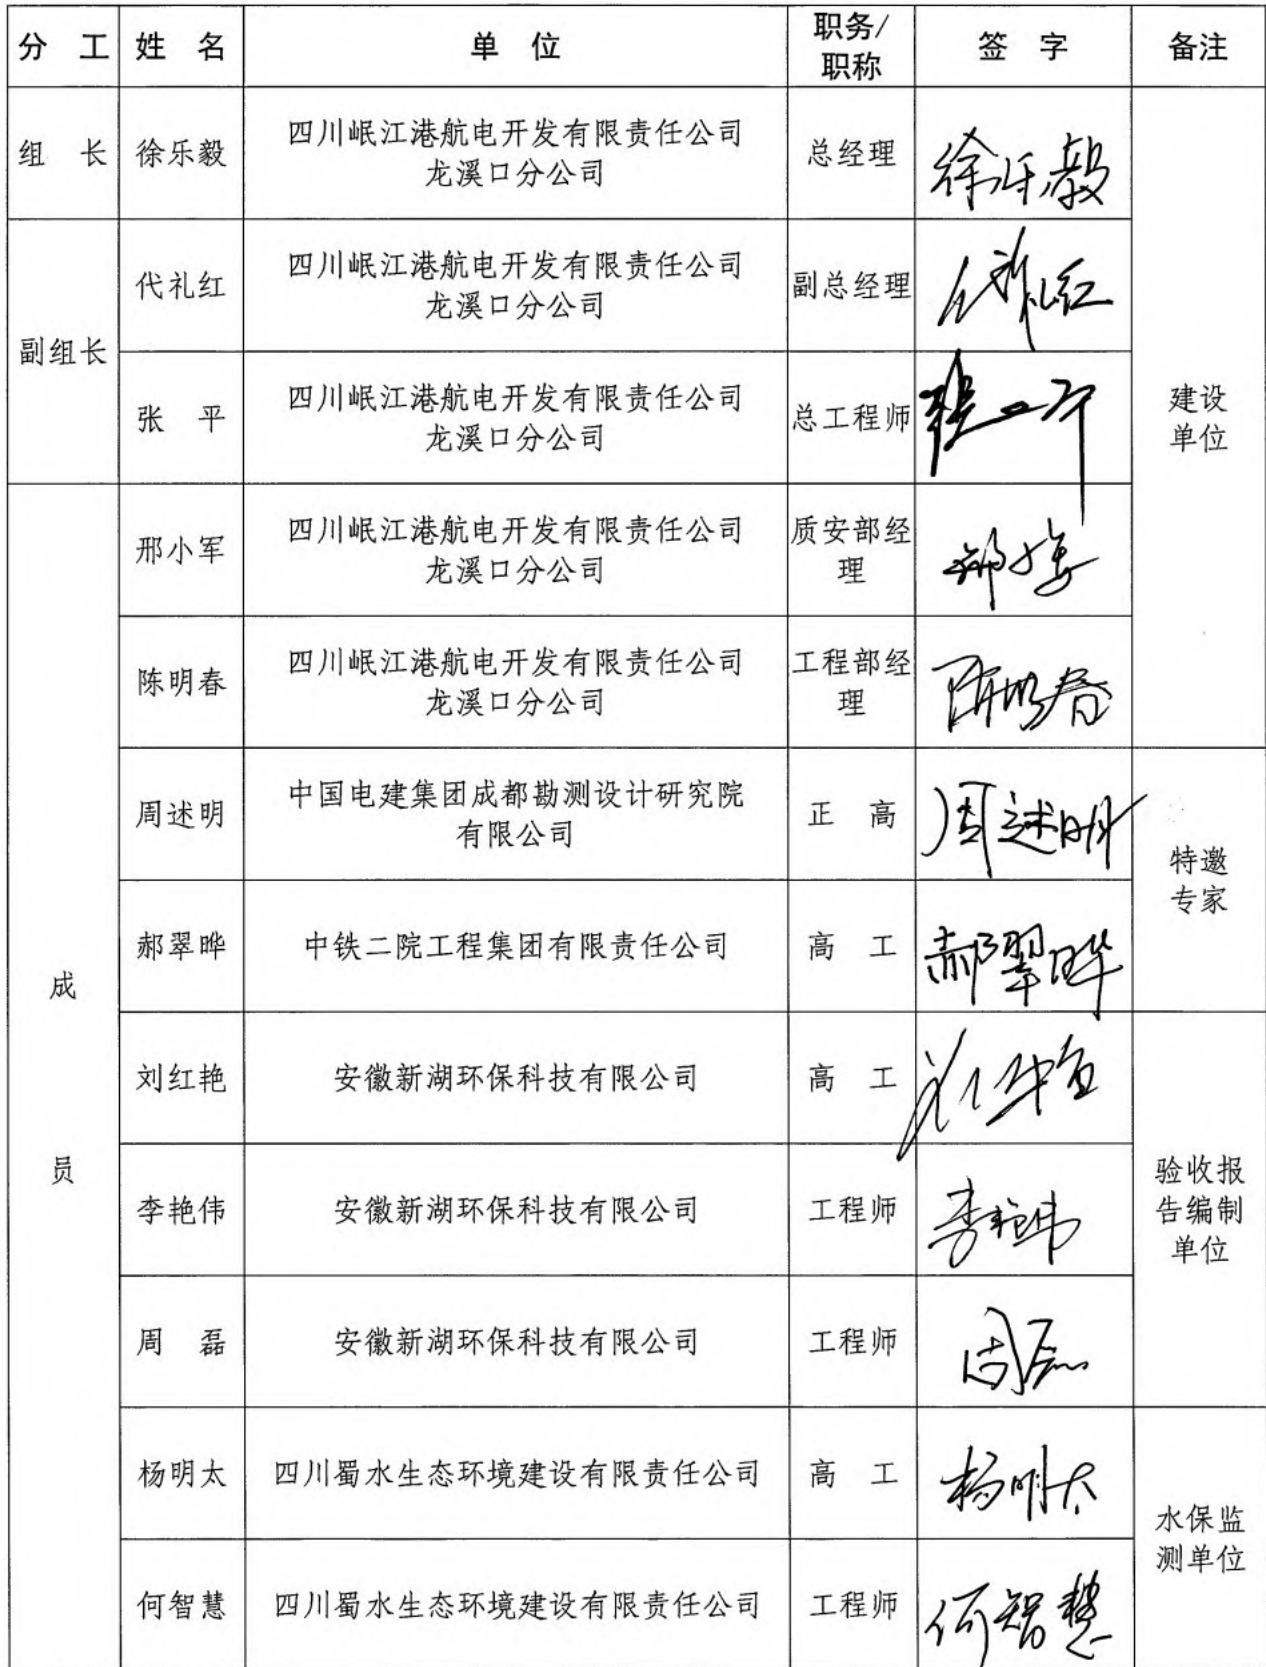 分 工 姓 名 单 位 职务/职称 签 字 备注
组 长 徐乐毅 四川岷江港航电开发有限责任公司龙溪口分公司 总经理 徐乐毅
副组长
代礼红 四川岷江港航电开发有限责任公司龙溪口分公司 副总经理 代礼红
张 平 四川岷江港航电开发有限责任公司龙溪口分公司 总工程师 张平
建设单位
成员
邢小军 四川岷江港航电开发有限责任公司龙溪口分公司 质安部经理 邢小军
陈明春 四川岷江港航电开发有限责任公司龙溪口分公司 工程部经理 陈明春
周述明 中国电建集团成都勘测设计研究院有限公司 正 高 周述明
特邀专家
郝翠晔 中铁二院工程集团有限责任公司 高 工 郝翠晔
刘红艳 安徽新湖环保科技有限公司 高 工
李艳伟 安徽新湖环保科技有限公司 工程师 李艳伟
验收报告编制单位
周 磊 安徽新湖环保科技有限公司 工程师 周磊
杨明太 四川蜀水生态环境建设有限责任公司 高 工 杨明太
水保监测单位
何智慧 四川蜀水生态环境建设有限责任公司 工程师 何智慧